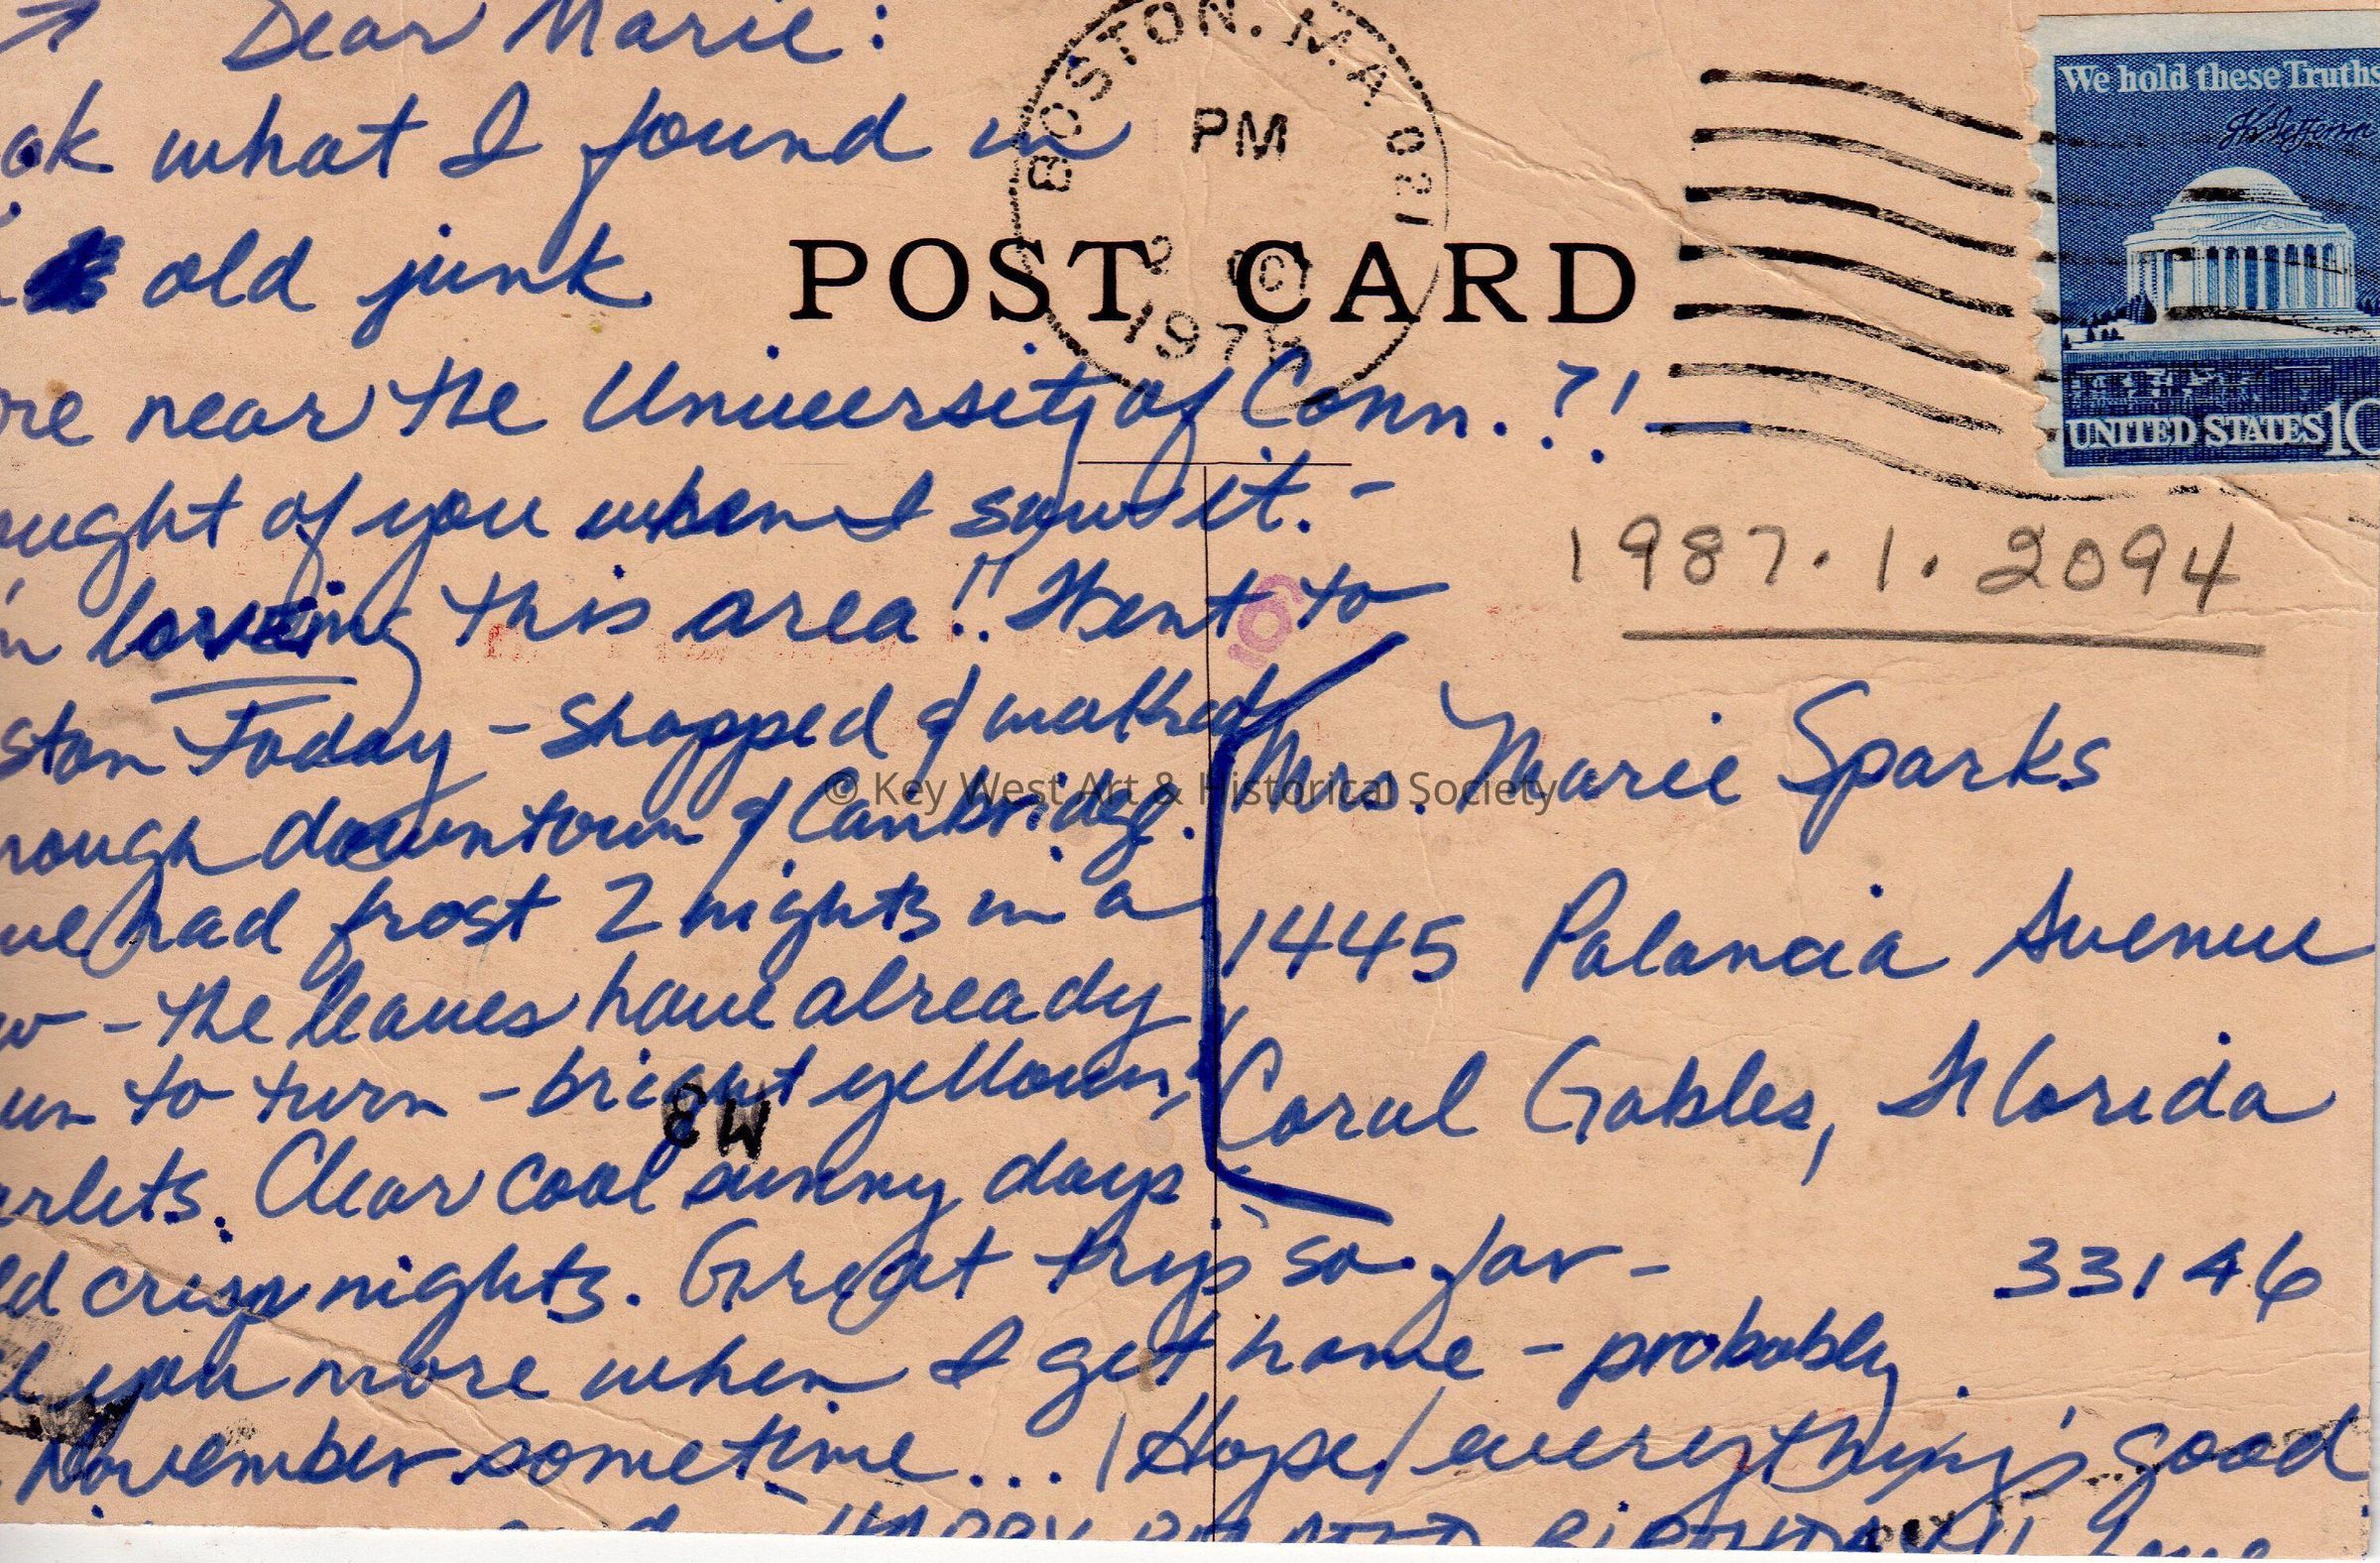 Dear Marie:
ok what I found in
old junk
re near the University of Conn.?! —
ought of you when I saw it. -
loveing this area!! Went to
ston Today - Shopped & walked
rough downtown & Cambridge.
had frost 2 nights in a
w - the leaves have already
un to turn - bright yellows,
arlets. Clear cool sunny days
ld crisp nights. Great trip so far -
l you more when I get home - probably
November sometime... (Hope everything's good
HAPPY BELATED BIRTHDAY!! Love
BOSTON, MA 021
PM
2 OCT
197
POST CARD
We hold these Truths
Th Jefferson
UNITED STATES 10
1987.1.2094
Mrs. Marie Sparks
1445 Palancia Avenue
Coral Gables, Florida
33146
M8
© Key West Art & Historical Society